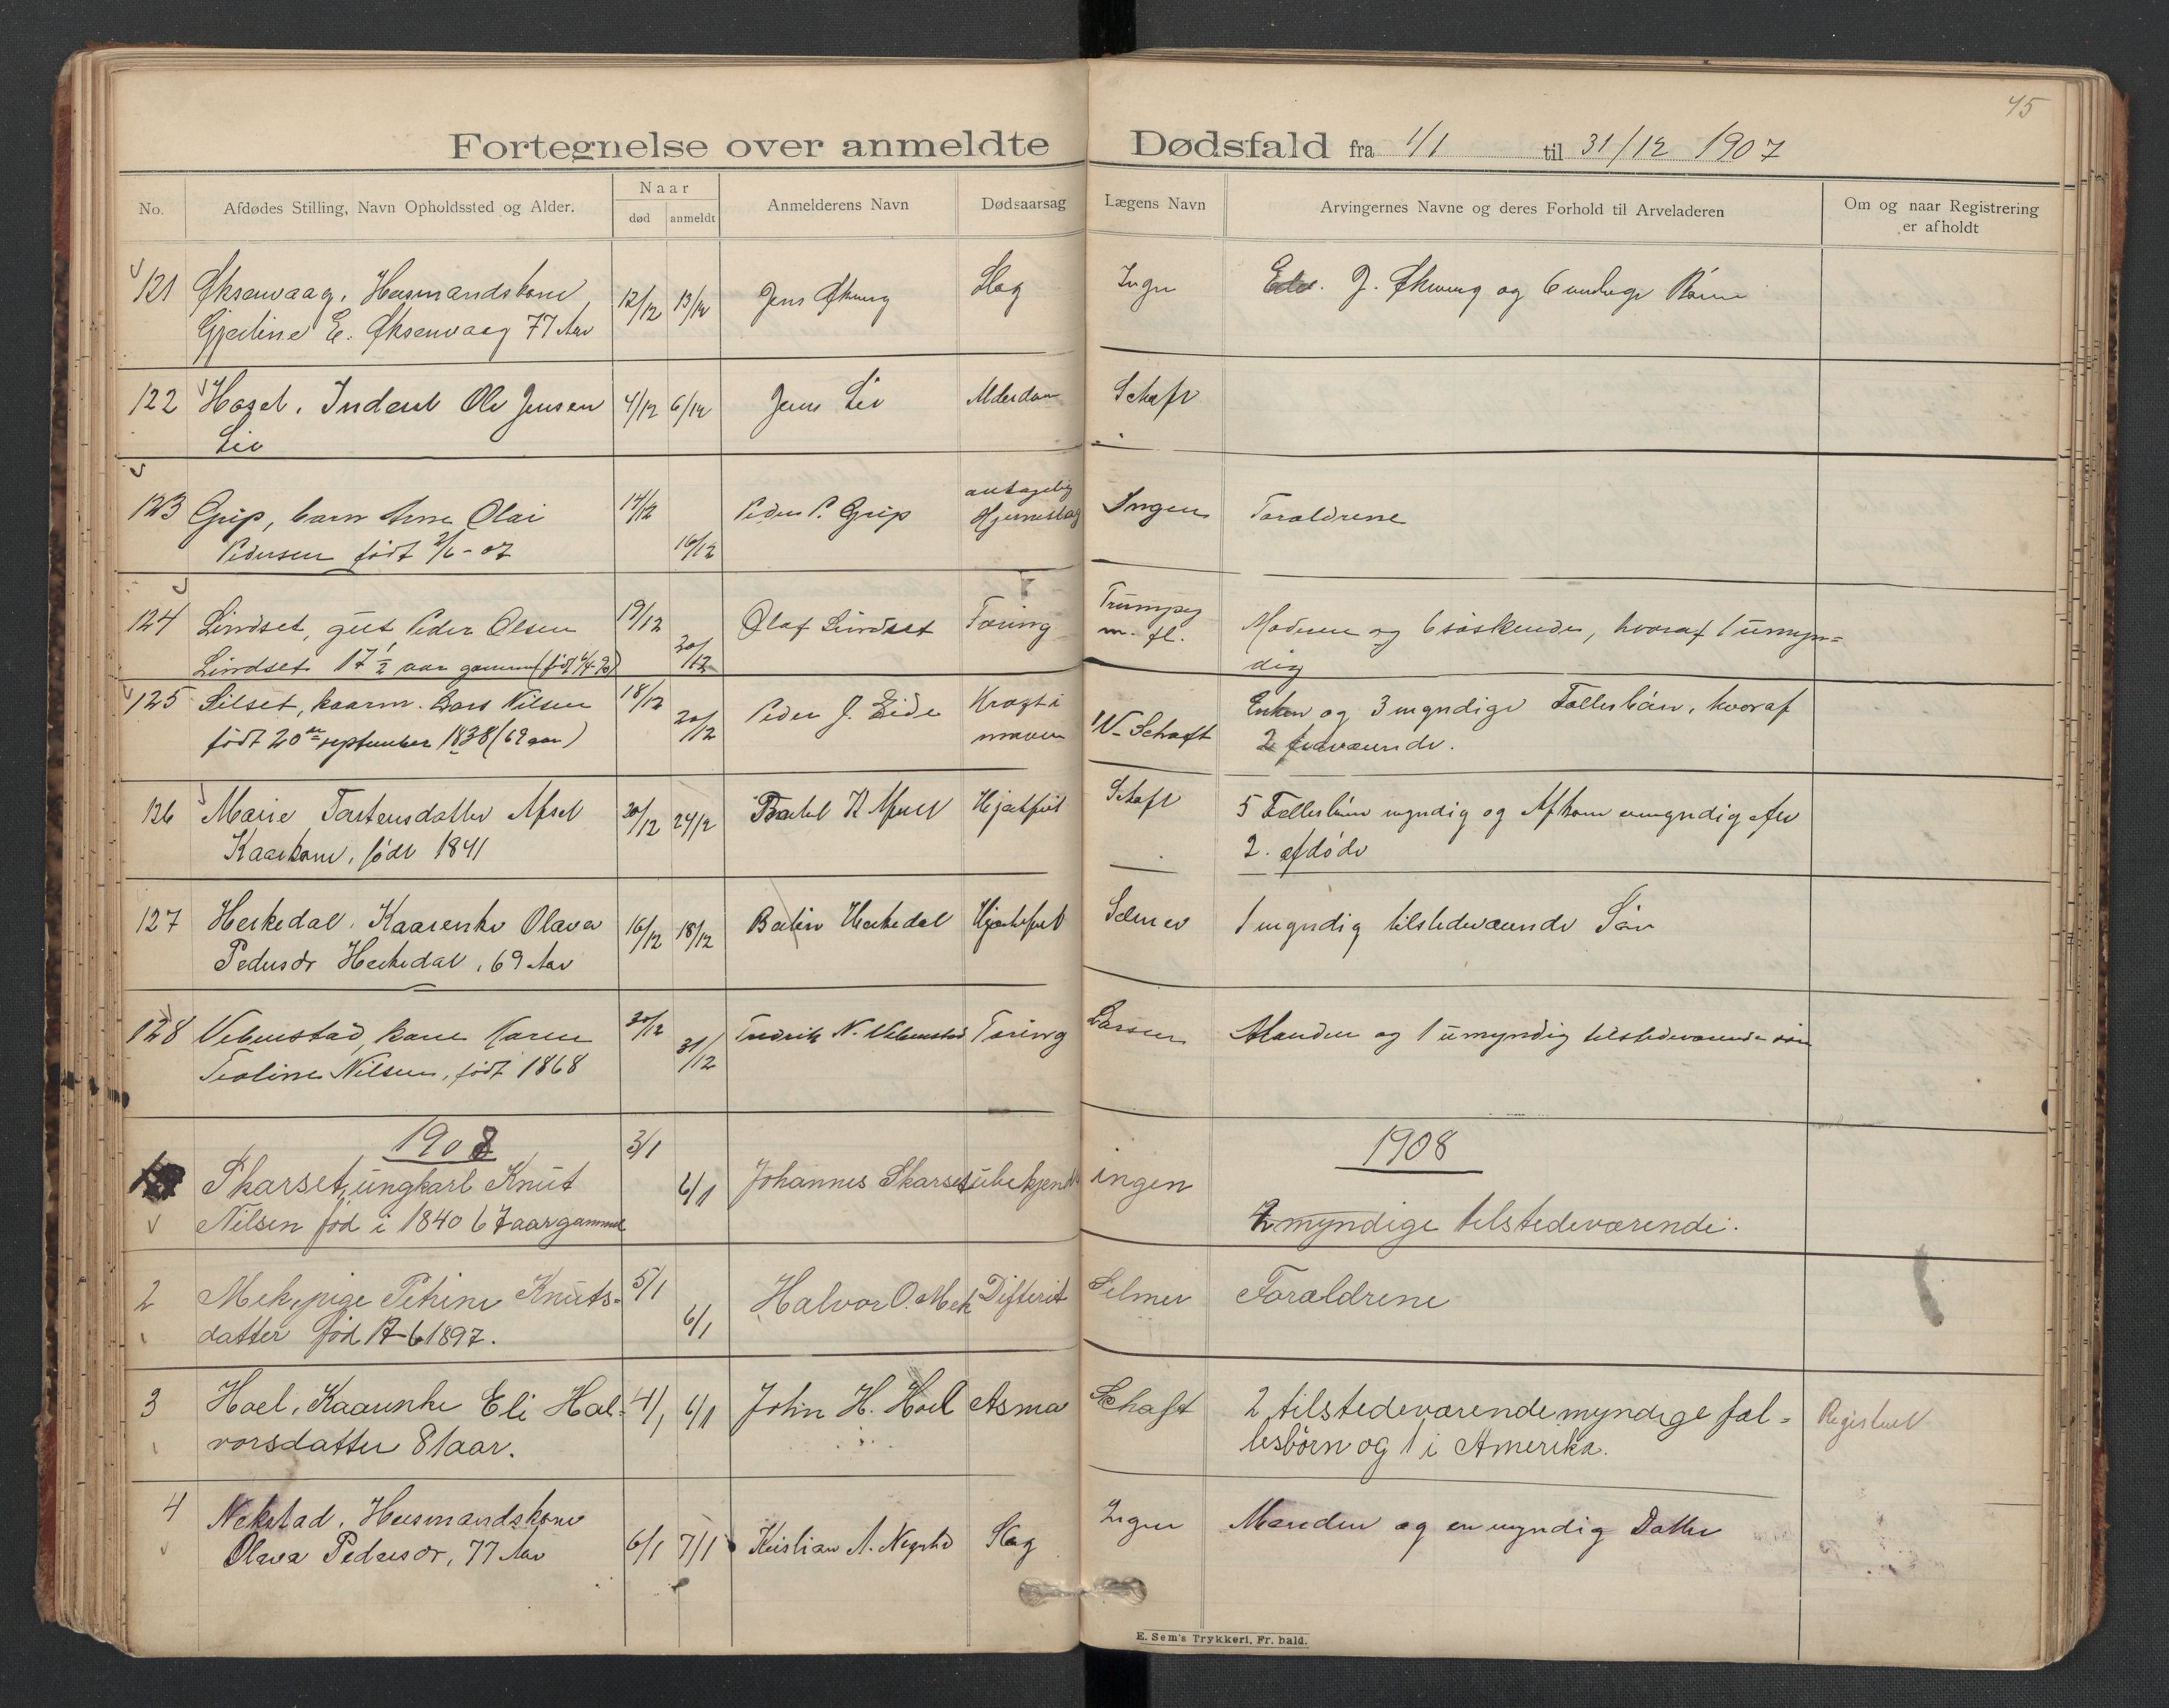 45
Fortegnelse over anmeldte Dødsfald fra 1/1 til 31/12 1907
No. Afdødes Stilling, Navn Opholdssted og Alder. Naar død anmeldt Anmelderens Navn Dødsaarsag Lægens Navn Arvingernes Navne og deres Forhold til Arveladeren Om og naar Registrering er afholdt
121 Øksenvaag, Husmandskone 12/12 13/12 Jens Slag Ingen J. og 6 myndige Børn
Gjertine E. Øksenvaag 77 Aar
122 Hasel, Inderst Ole Jensen 4/12 6/12 Jens Lie Alderdom Schaft
Lie
123 Grip, barn Arne Olai 14/12 16/12 Peder P. Grip antagelig Hjerneslag Ingen Forældrene
Pedersen født 2/6-07
124 Lindset, gut Peder Olsen 19/12 20/12 Olaf Lindset Tæring Trumpy m. fl. Moderen og 6 søskende, hvoraf 1 umyn=
Lindset 17 1/2 aar gammel (født 4/4-90) dig
125 Silset, kaarm. Lars Nilsen 18/12 20/12 Peder J. Eide Kræft i maven W. Schaft Enken og 3 myndige Fællesbørn, hvoraf
født 20de september 1838 (69 aar) 2 fraværende.
126 Marie Torstensdatter Afset 20/12 24/12 Bartel K Afset Hjertefeil Schaft 5 Fællesbørn myndig og Afkom umyndig efter
Kaarkone, født 1841 2. afdøde
127 Heskedal, Kaarenke Olava 16/12 18/12 Heskedal Hjertefeil Selmer 1 myndig tilstedeværende Søn
Pedersdr Heskedal, 69 Aar
128 Vebenstad, kone Karen 30/12 31/12 Fredrik N. Vebenstad Tæring Larsen Manden og 1 umyndig tilstedeværende søn
Nilsen, født 1868
1908 1908
Skarset, ungkarl Knut 3/1 6/1 Johannes Skarset ubekjendt ingen
Nilsen fød i 1840 67 aar gammel 2 myndige tilstedeværende.
2 Mek, pige Petrine Knuts= 5/1 6/1 Halvor O. Mek Difterit Selmer Forældrene
datter fød 17-6 1897.
3 Hoel, Kaarenke Eli Hal= 4/1 6/1 John H. Hoel Asma Schaft 2 tilstedeværende myndige fæl= Registreret
vorsdatter 81 aar. lesbörn og 1 i Amerika.
4 Nekstad, Husmandskone 6/1 7/1 Kristian A. Slag Ingen Manden og en myndig Datter
Olava Pedersdr, 77 Aar
E. Sem's Trykkeri, Fr. hald.